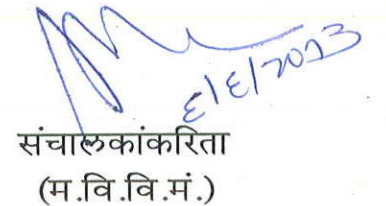 ६/६/२०२३
संचालकांकरिता
(म.वि.वि.मं.)